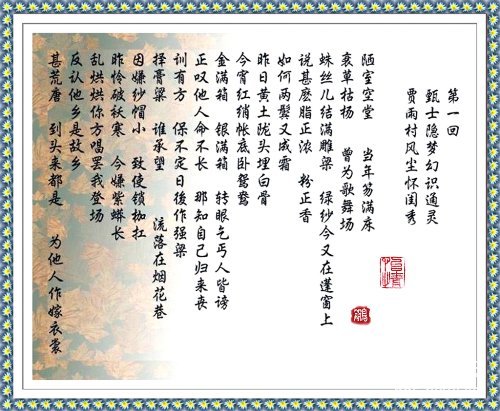 第一回
甄士隐梦幻识通灵
贾雨村风尘怀闺秀
陋室空堂 当年笏满床
衰草枯杨 曾为歌舞场
蛛丝儿结满雕梁 绿纱今又在蓬窗上
说甚麽脂正浓 粉正香
如何两鬓又成霜
昨日黄土陇头埋白骨
今宵红绡帐底卧鸳鸯
金满箱 银满箱 转眼乞丐人皆谤
正叹他人命不长 那知自己归来丧
训有方 保不定日後作强梁
择膏梁 谁承望 流落在烟花巷
因嫌纱帽小 致使锁枷扛
昨怜破袄寒 今嫌紫蟒长
乱烘烘你方唱罢我登场
反认他乡是故乡
甚荒唐 到头来都是 为他人作嫁衣裳